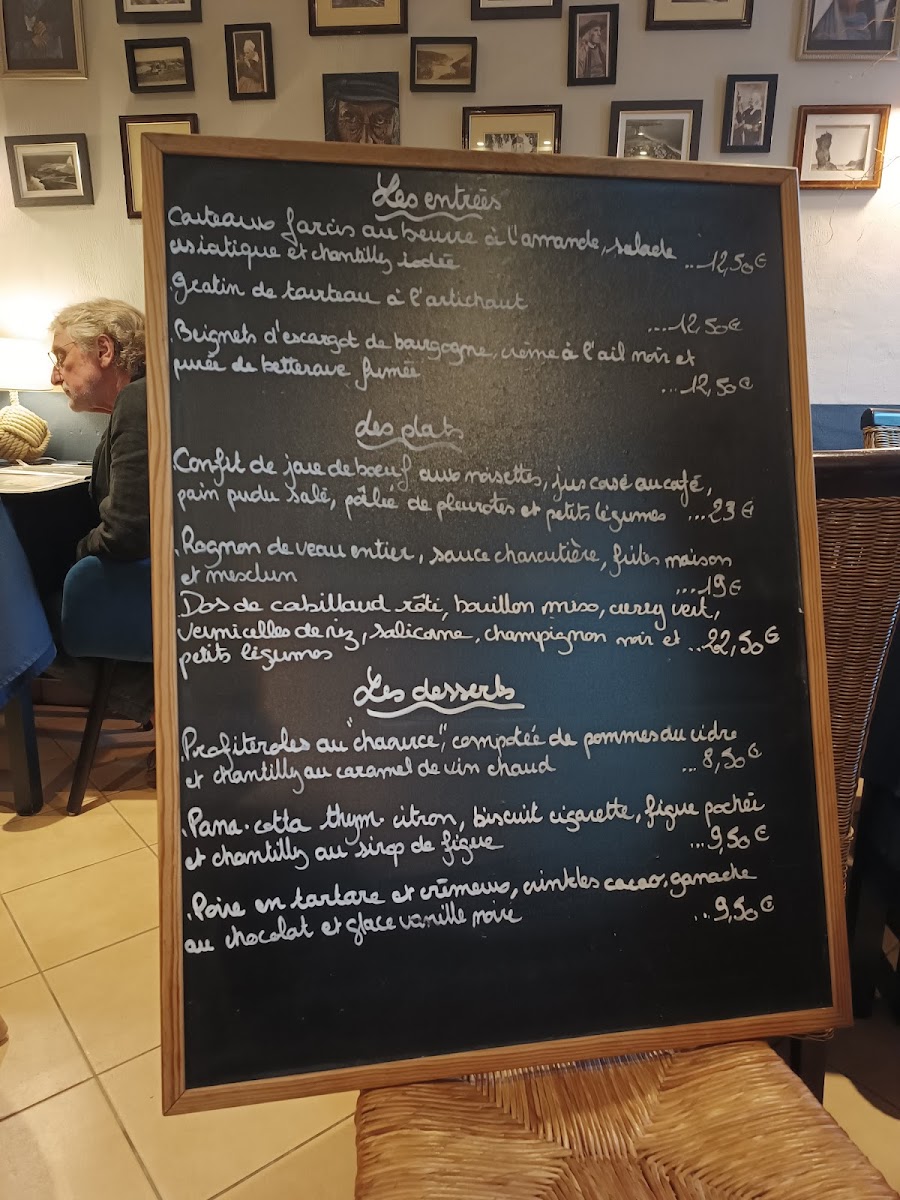 Les entrées
Couteaux farcis au beurre à l'amande, salade
asiatique et chantilly iodée ...12,50€
.Gratin de tourteau à l'artichaut
...12,50€
.Beignets d'escargot de bourgogne, crème à l'ail noir et
purée de betterave fumée
...12,50€
des plats
.Confit de joue de boeuf aux noisettes, jus corsé au café,
pain perdu salé, poêlée de pleurotes et petits légumes ...23€
.Rognon de veau entier, sauce charcutière, frites maison
et mesclun ...19€
Dos de cabillaud rôti, bouillon miso, curry vert,
vermicelles de riz, salicorne, champignon noir et ...22,50€
petits légumes
Les desserts
.Profiteroles au "chaource", compotée de pommes au cidre
et chantilly au caramel de vin chaud ...8,50€
.Pana-cotta thym-citron, biscuit cigarette, figue pochée
et chantilly au sirop de figue ...9,50€
.Poire en tartare et crémeux, crinkles cacao, ganache
au chocolat et glace vanille noire ...9,50€